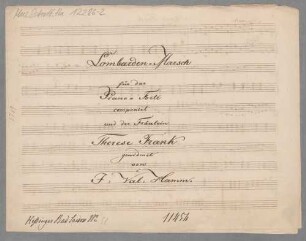 12206-2
Lombarden-Marsch
für das
Piano-Forte
componirt
und der Fräulein
Therese Frank
gewidmet
von
F. Val. Hamm
Kissinger Bad Saison
11454